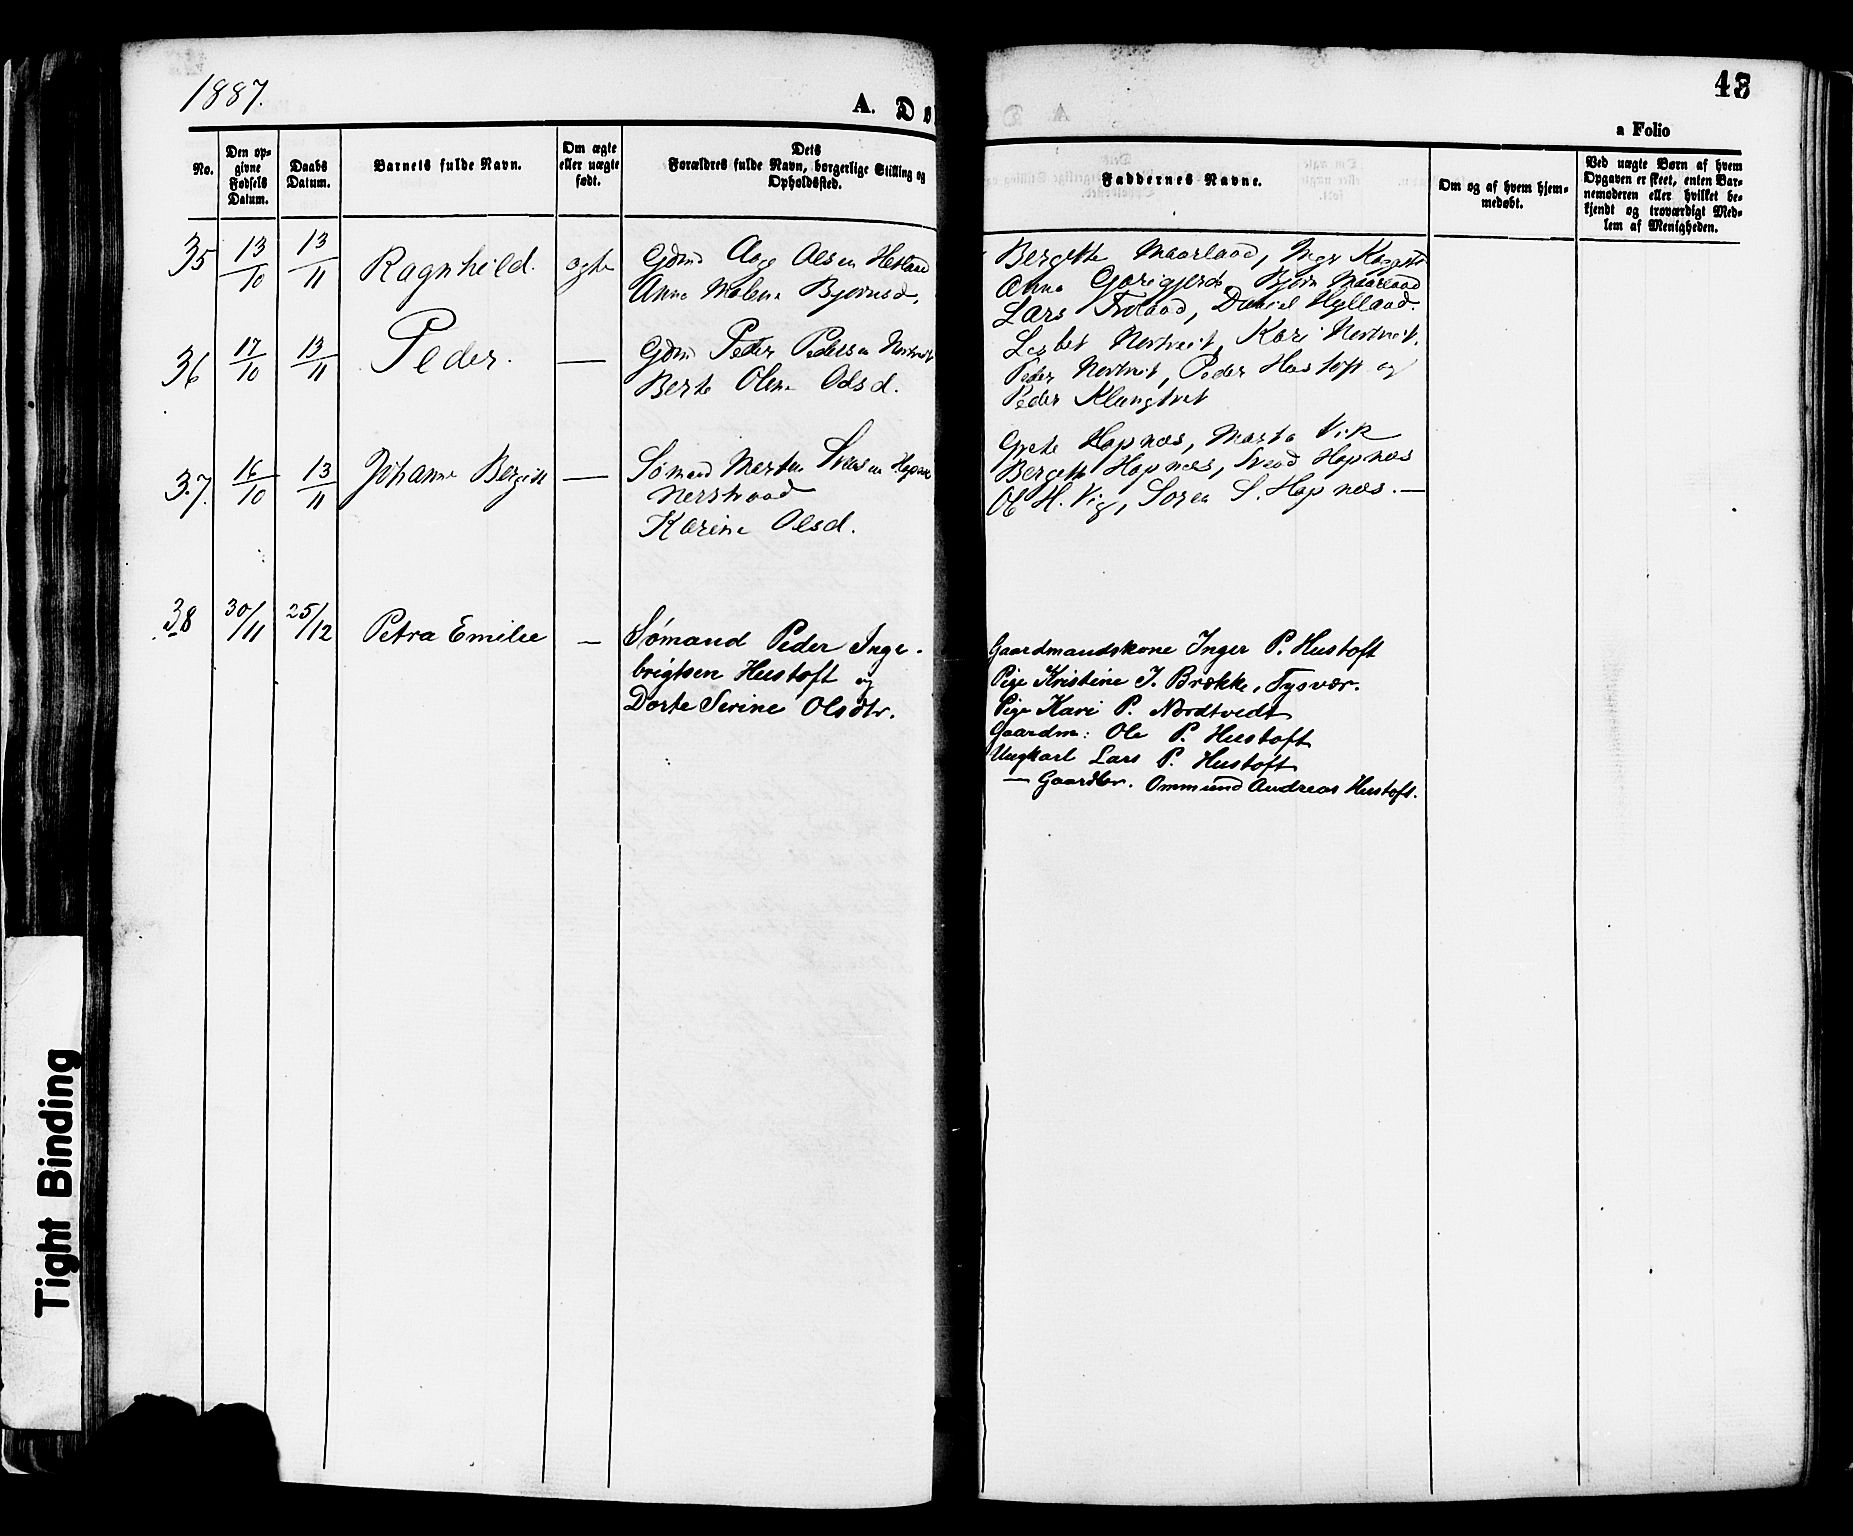 1887.
A. D
48
a Folio
No.
Den op-
givne
Fødsels
Datum.
Daabs
Datum.
Barnets fulde Navn.
Om ægte
eller uægte
født.
Dets
Forældres fulde Navn, borgerlige Stilling og
Opholdssted.
Faddernes Navne.
Om og af hvem hjem-
medøbt.
Ved uægte Børn af hvem
Opgaven er skeet, enten Bar-
nemoderen eller hvilket be-
kjendt og troværdigt Med-
lem af Menigheden.
35 13/10 13/11 Ragnhild. ægte
Gdmd Aage Olsen
Anna Malene Bjørnsd.
Bergitte Maarland, Inger
Anna Bjørn Maarland
Lars Daniel Hylland.
36 17/10 13/11 Peder. —
Gdmd Peder Pedersen
Berte Oline Olsd.
Kari Nortveit.
Peder Nortveit, Peder Hustoft og
Peder Klungtveit
37. 16/10 13/11 Johanne —
Sømand Morten Svensen
Nerstrand
Karine Olsd.
Grete Hapnæs, Marta Vik
Hapnæs, Svend Hapnæs
H. Vig, Søren S. Hapnæs. —
38 30/11 25/12 Petra Emilie —
Sømand Peder Inge-
brigtsen Hustoft og
Dorte Serine Olsdtr.
Gaardmandskone Inger P. Hustoft
Pige Kristine I. Brække, Tysvær.
Pige Kari P. Nordtvedt
Gaardm: Ole P. Hustoft
Ungkarl Lars P. Hustoft
— Gaardbr. Ommund Andreas Hustoft.
Tight Binding